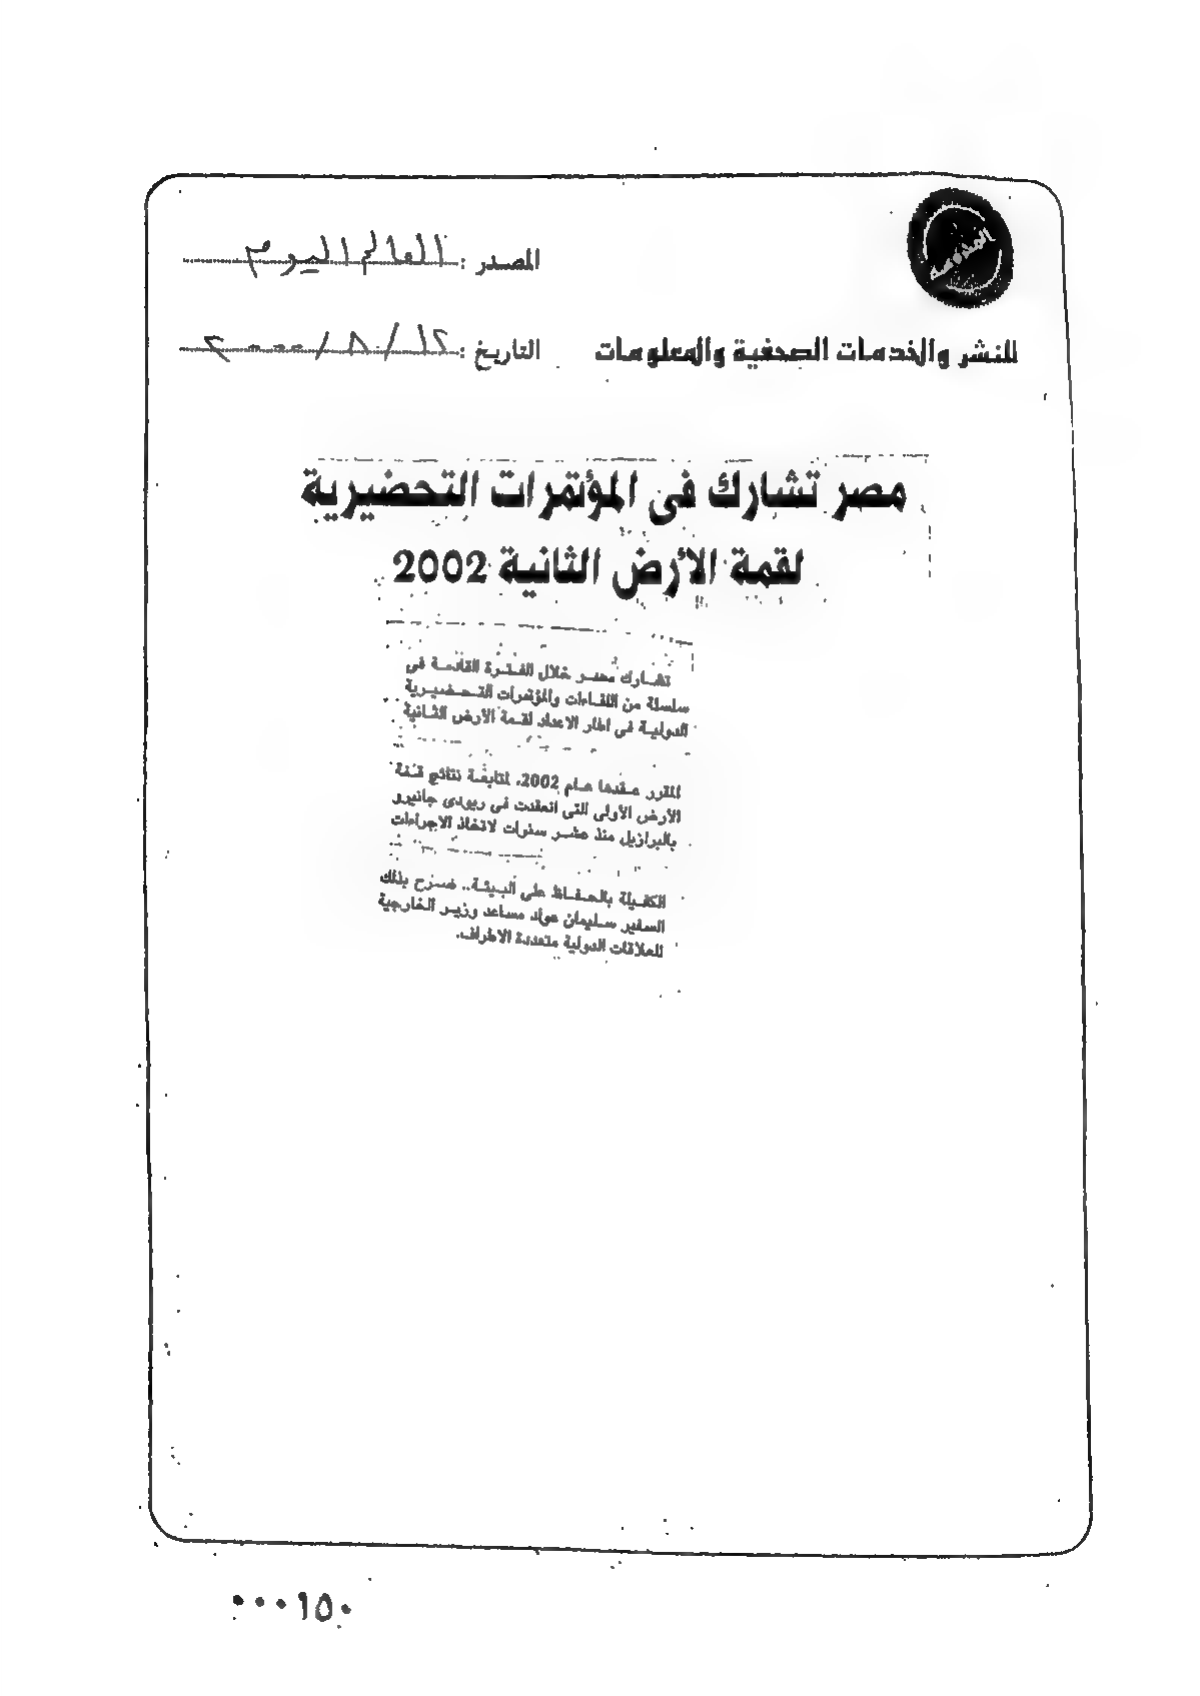 المصدر : العالم اليوم
للنشر والخدمات الصحفية والمعلومات
التاريخ : ١٢ / ٨ / ٢٠٠٠
مصر تشارك فى المؤتمرات التحضيرية
لقمة الأرض الثانية 2002
تشارك مصر خلال الفترة القادمة فى
سلسلة من اللقاءات والمؤتمرات التحضيرية
الدولية فى اطار الاعداد لقمة الأرض الثانية
المقرر عقدها عام 2002، لمتابعة نتائج قمة
الأرض الأولى التى انعقدت فى ريودى جانيرو
بالبرازيل منذ عشر سنوات لاتخاذ الاجراءات
الكفيلة بالحفاظ على البيئة.. صرح بذلك
السفير سليمان عواد مساعد وزير الخارجية
للعلاقات الدولية متعددة الاطراف.
٠٠٠١٥٠